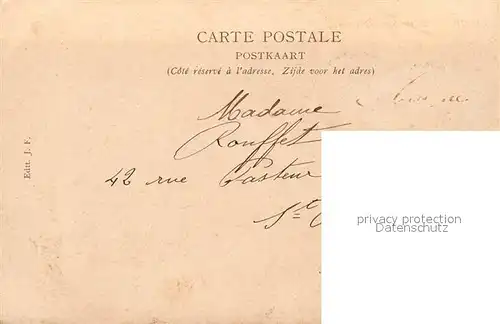 CARTE POSTALE
POSTKAART
(Côté réservé à l'adresse, Zijde voor het adres)
Madame
Rouffet
42 rue Pasteur
St
Edit. J. F.
privacy protection
Datenschutz